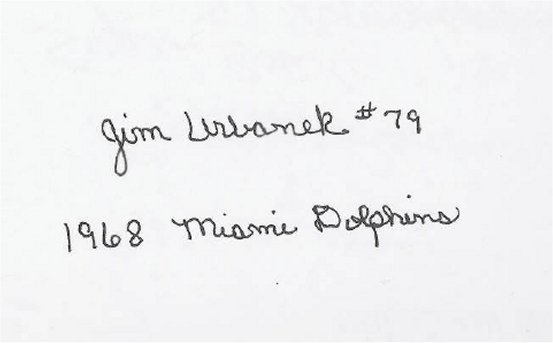 Jim Urbanek #79
1968 Miami Dolphins